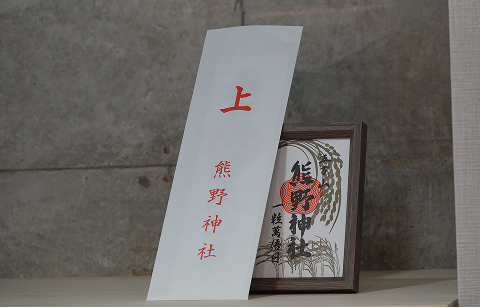 上
熊野神社
熊野神社
一粒萬倍日